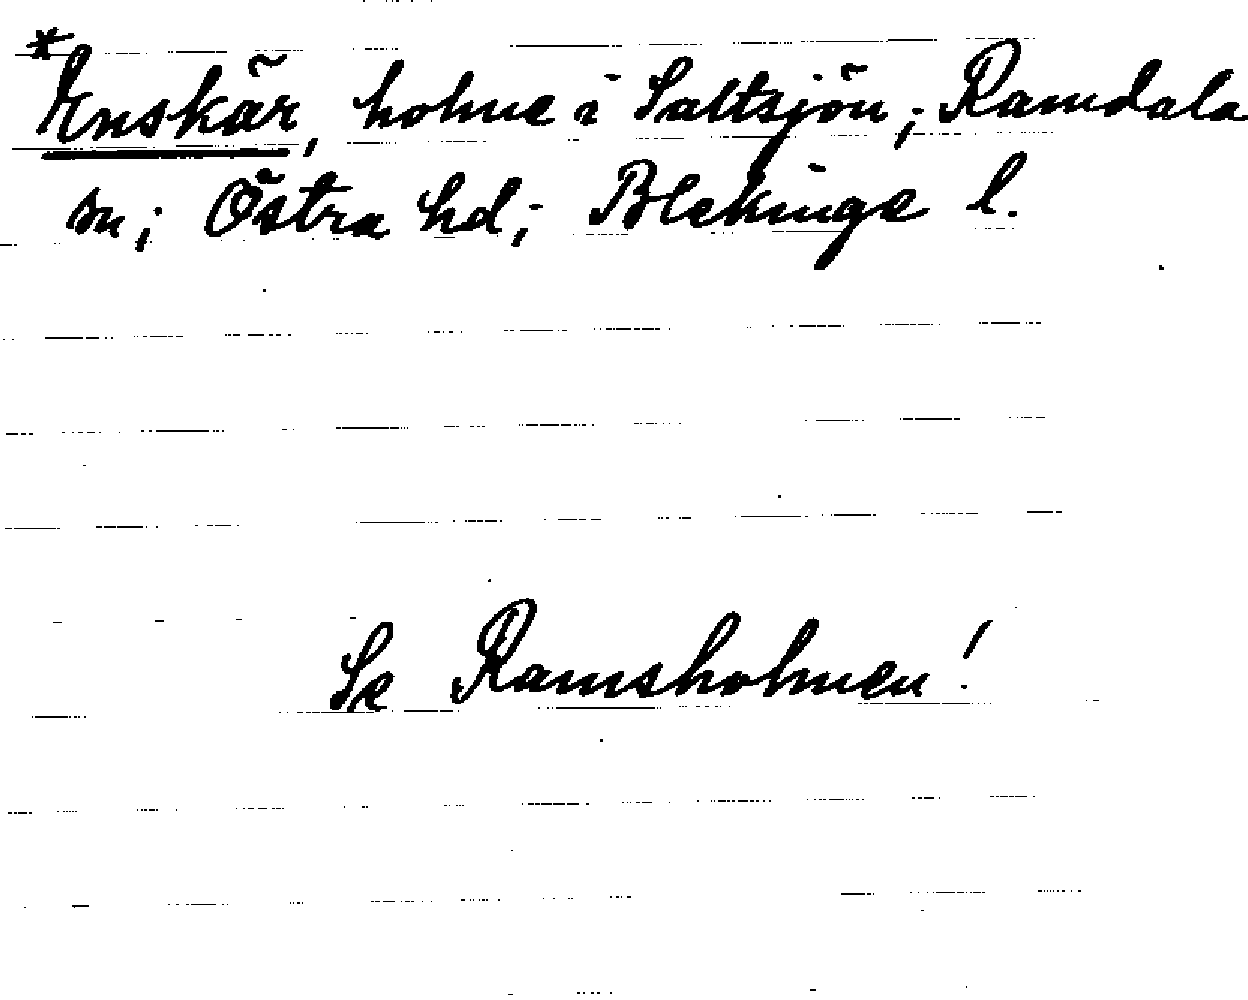 *Enskär, holme i Saltsjön; Ramdala
sn; Östra hd; Blekinge l.
Se Ramsholmen!